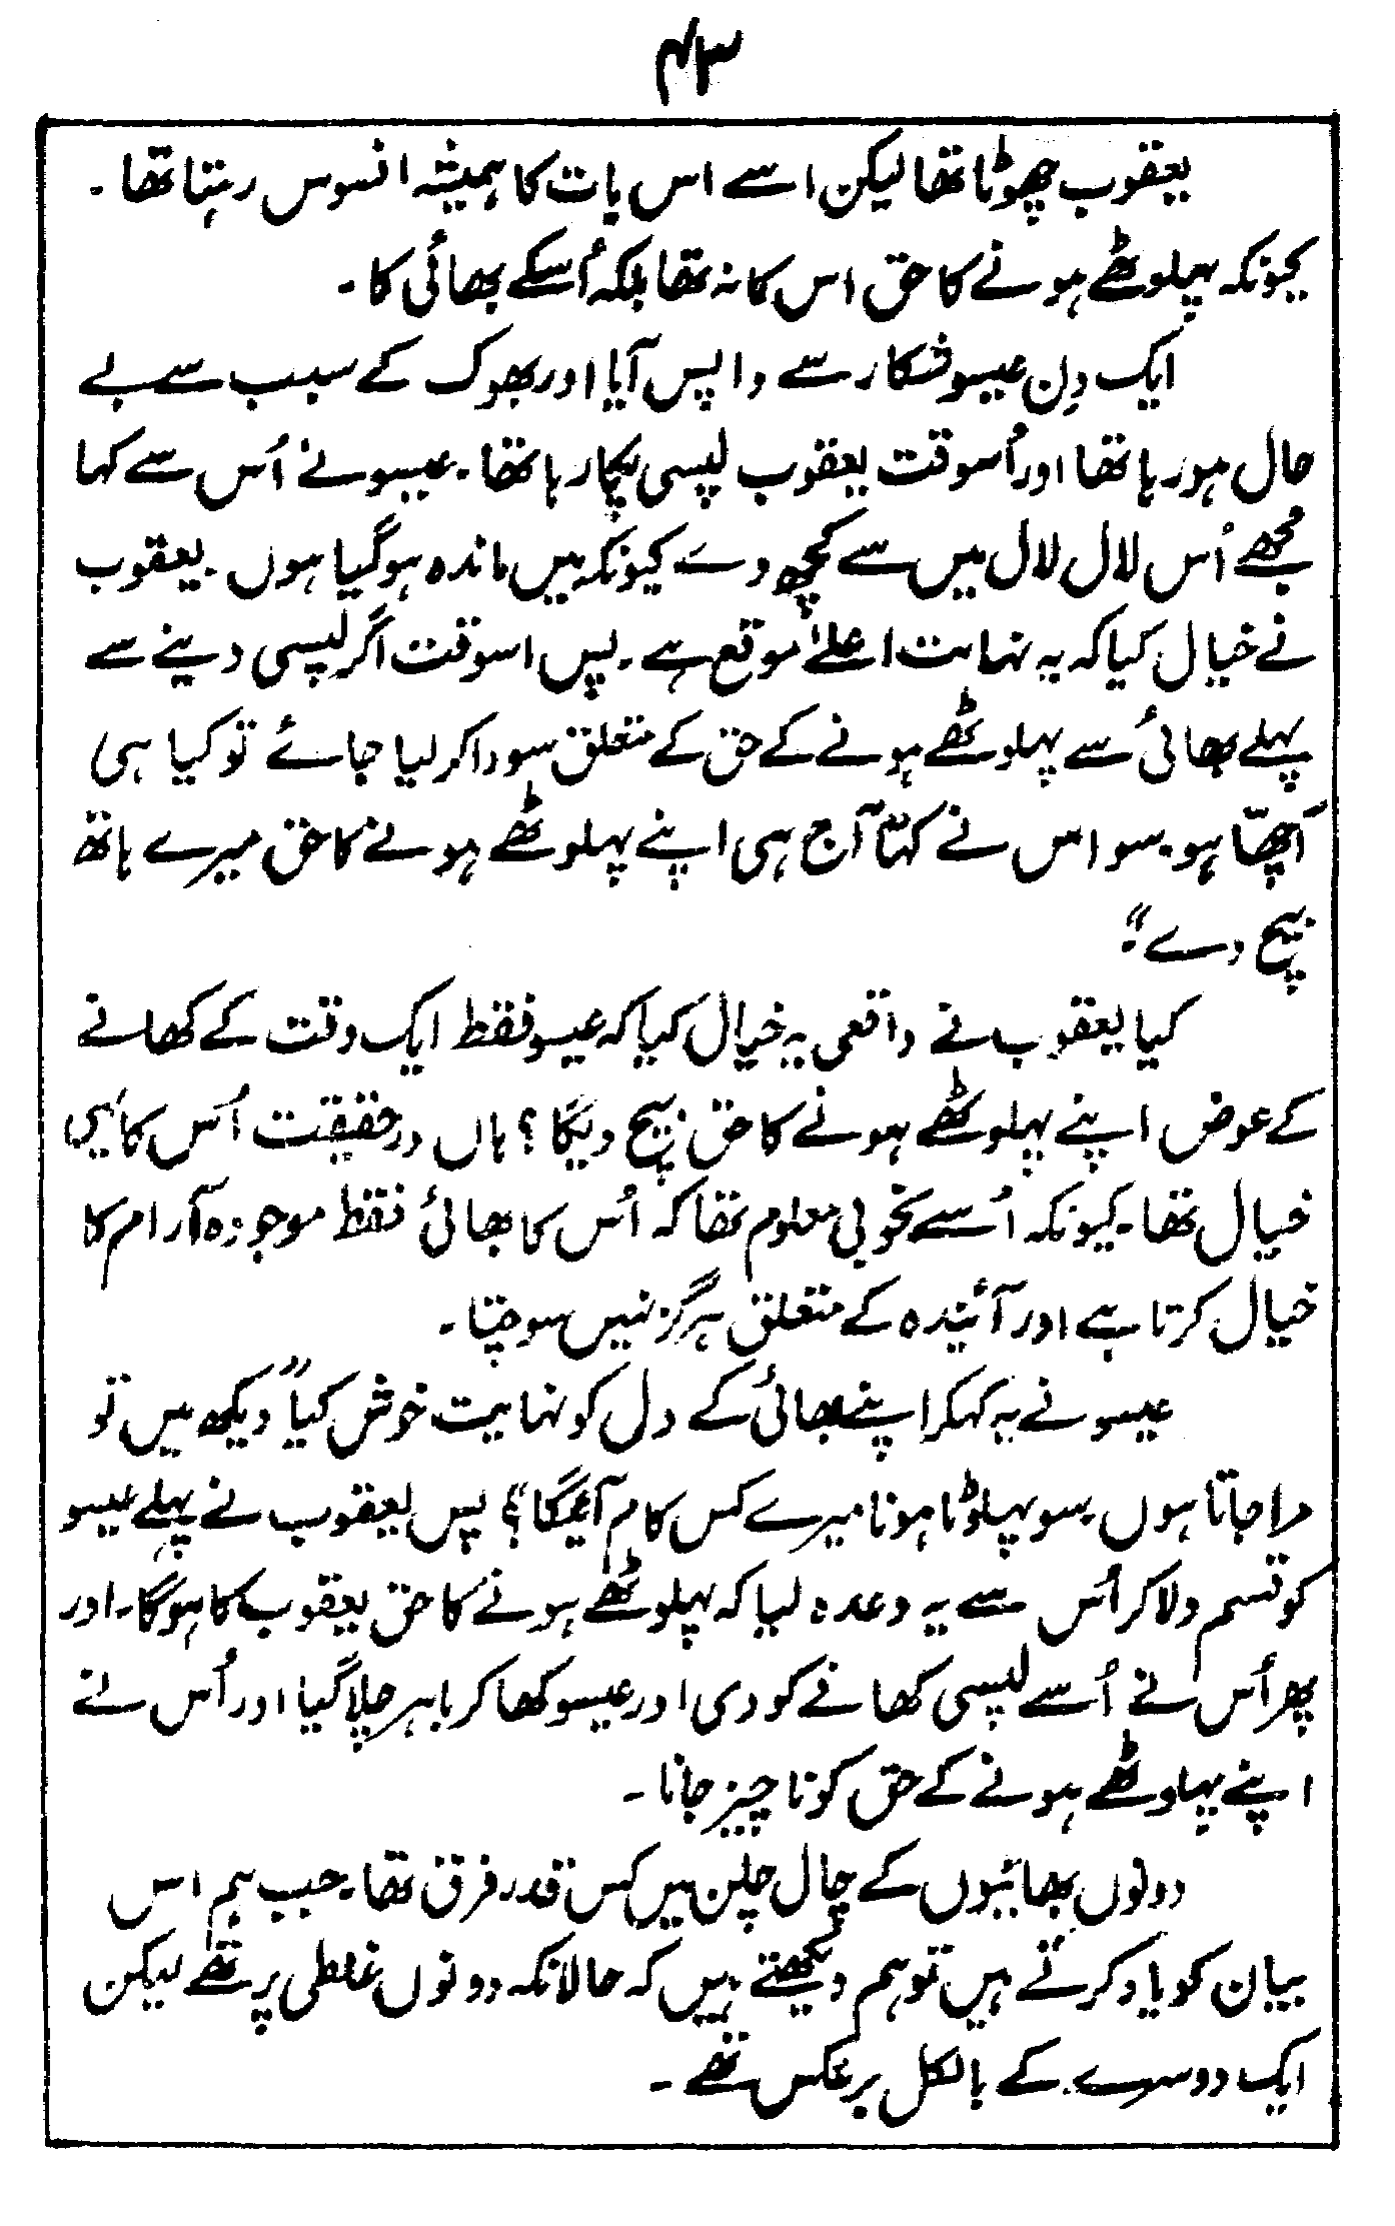 ۴۳
یعقوب چھوٹا تھا لیکن اسے اس بات کا ہمیشہ افسوس رہتا تھا۔
کیونکہ پہلوٹھے ہونے کا حق اس کا نہ تھا بلکہ اُسکے بھائی کا۔
ایک دِن عیسو شکار سے واپس آیا اور بھوک کے سبب سے بے
حال ہو رہا تھا اور اُسوقت یعقوب لپسی پکا رہا تھا۔ عیسو نے اُس سے کہا
مُجھے اُس لال لال میں سے کچھ دے کیونکہ میں ماندہ ہوگیا ہوں۔ یعقوب
نے خیال کیا کہ یہ نہایت اعلےٰ موقع ہے۔ پس اسوقت اگر لپسی دینے سے
پہلے بھائی سے پہلوٹھے ہونے کے حق کے متعلق سودا کر لیا جائے تو کیا ہی
اَچھّا ہو۔ سو اس نے کہا ”آج ہی اپنے پہلوٹھے ہونے کا حق میرے ہاتھ
بیچ دے“۔
کیا یعقوب نے واقعی یہ خیال کیا کہ عیسو فقط ایک وقت کے کھانے
کے عوض اپنے پہلوٹھے ہونے کا حق بیچ دیگا؟ ہاں درحقیقت اُس کا یہی
خیال تھا۔ کیونکہ اُسے بخوبی معلوم تھا کہ اُس کا بھائی فقط موجودہ آرام کا
خیال کرتا ہے اور آئیندہ کے متعلق ہرگز نہیں سوچتا۔
عیسو نے یہ کہکر اپنے بھائی کے دل کو نہایت خوش کیا ”دیکھ میں تو
مرا جاتا ہوں۔ سو پہلوٹا ہونا میرے کس کام آئیگا؟“ پس یعقوب نے پہلے عیسو
کو قسم دلا کر اُس سے یہ وعدہ لیا کہ پہلوٹھے ہونے کا حق یعقوب کا ہوگا۔ اور
پھر اُس نے اُسے لپسی کھانے کو دی اور عیسو کھا کر باہر چلا گیا اور اُس نے
اپنے پہلوٹھے ہونے کے حق کو ناچیز جانا۔
دونوں بھائیوں کے چال چلن میں کس قدر فرق تھا۔ جب ہم اس
بیان کو یاد کرتے ہیں تو ہم دیکھتے ہیں کہ حالانکہ دونوں غلطی پر تھے لیکن
ایک دوسرے کے بالکل برعکس تھے۔